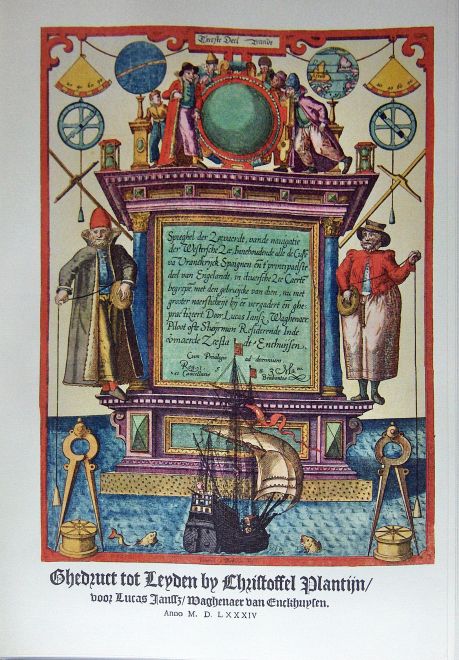 Eerste Deel vande
Spieghel der Zeevaerdt, vande navigatie
der Westersche Zee, Innehoudende alle de Custē
vā Vranckrijck Spaignen eñ t' principaelste
deel van Engelandt, in diversche Zee Caertē
begrepē, met den gebruijcke van dien, nu met
grooter naersticheijt bij eē vergadert eñ ghe-
practizeert Door Lucas Iansz Waghenaer
Piloot ofte Stuijrman Residerende Inde
vermaerde Zeestadt Enchuijsen.
Cum Privilegio ad decennium
Brabantiae
Ghedruct tot Leyden by Christoffel Plantijn/
voor Lucas Janssz/ Waghenaer van Enckhuysen.
Anno M. D. LXXXIV